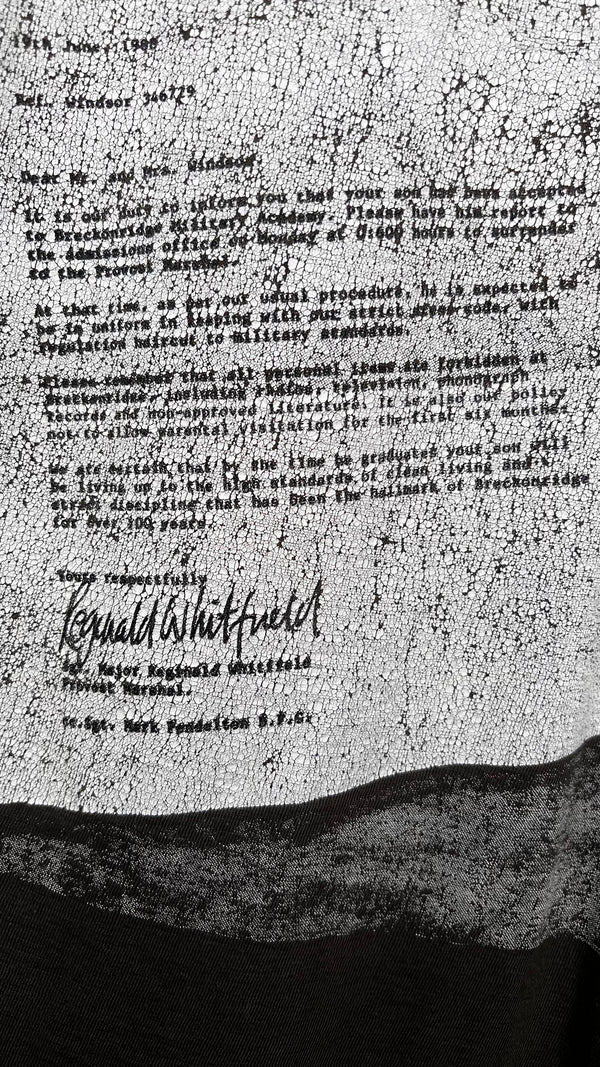 19th June, 1988
Ref. Windsor 346779
Dear Mr. and Mrs. Windsor
It is our duty to inform you that your son has been accepted
to Breckonridge Military Academy. Please have him report to
the admissions office on Monday at 0:600 hours to surrender
to the Provost Marshal.
At that time, as per our usual procedure, he is expected to
be in uniform in keeping with our strict dress code, with
regulation haircut to military standards.
Please remember that all personal items are forbidden at
Breckonridge, including radios, television, phonograph
records and non-approved literature. It is also our policy
not to allow parental visitation for the first six months.
We are certain that by the time he graduates your son will
be living up to the high standards of clean living and
strict discipline that has been the hallmark of Breckonridge
for over 100 years.
Yours respectfully
Reginald Whitfield
Sgt. Major Reginald Whitfield
Provost Marshal.
Mark Pendelton